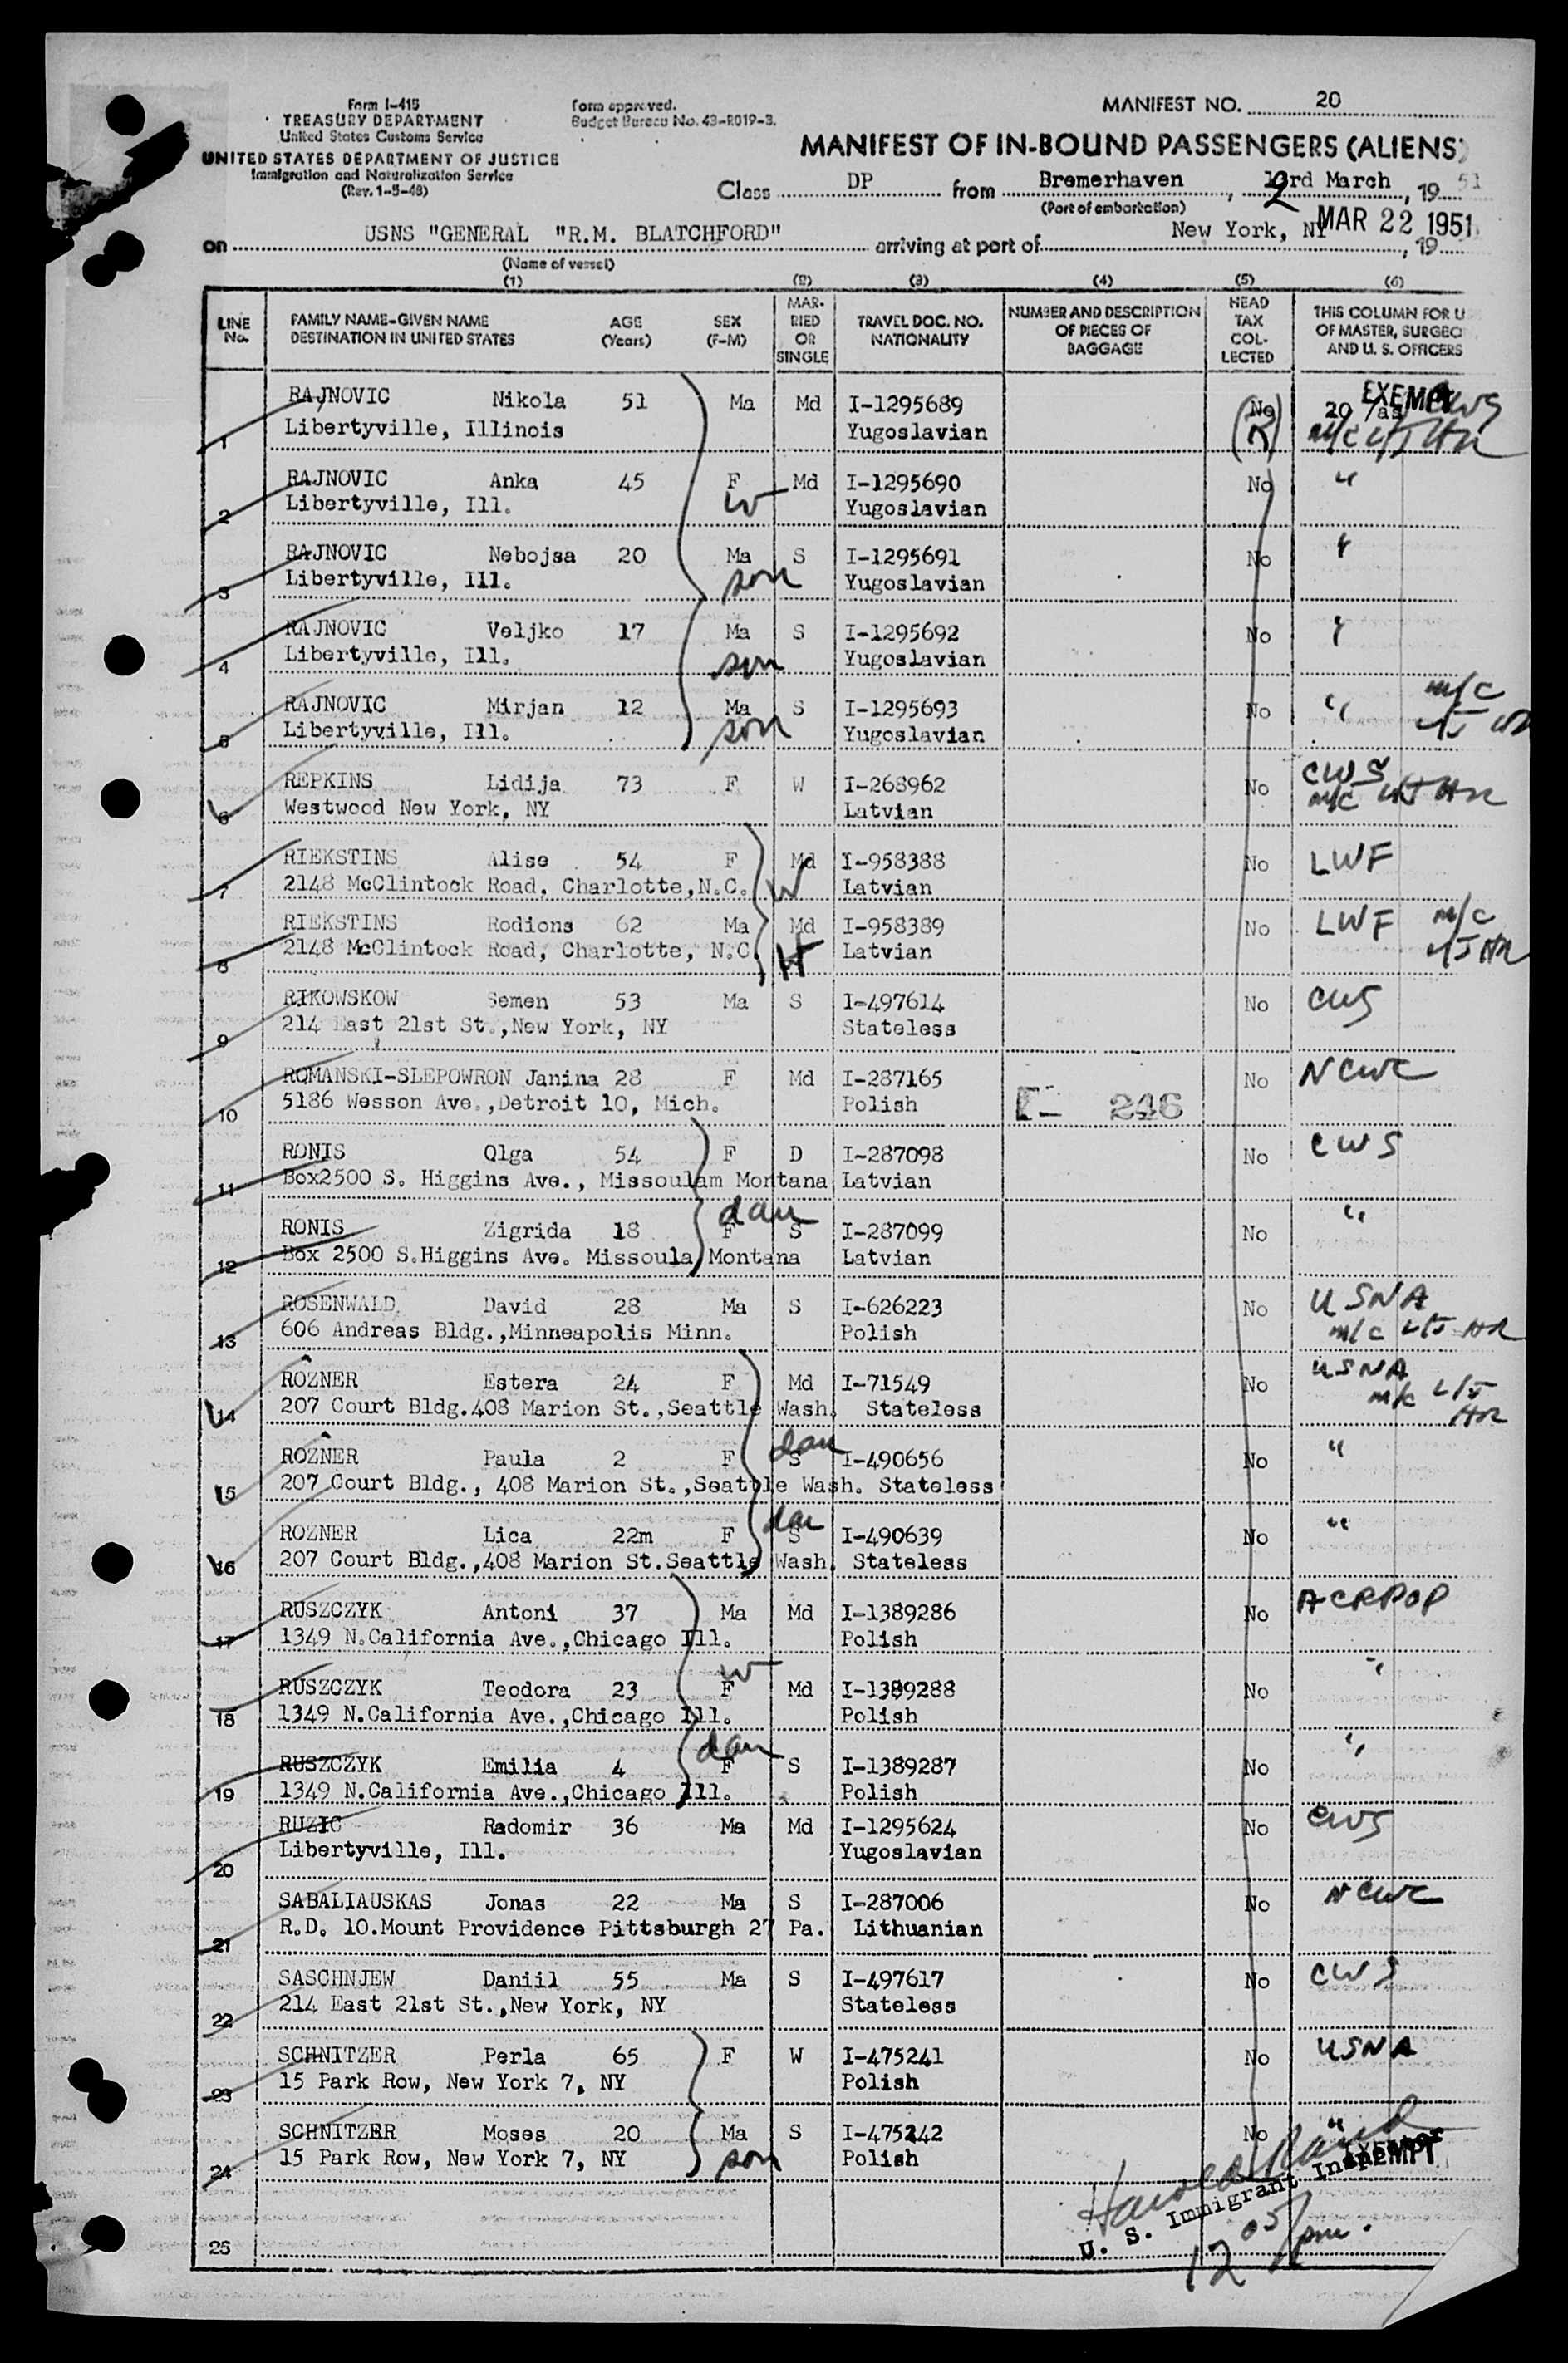 Form I-415
TREASURY DEPARTMENT
United States Customs Service
UNITED STATES DEPARTMENT OF JUSTICE
Immigration and Naturalization Service
(Rev. 1-5-48)
Form approved.
Budget Bureau No. 43-R019-3.
MANIFEST NO. 20
MANIFEST OF IN-BOUND PASSENGERS (ALIENS)
Class DP from Bremerhaven, rd March, 19 51
(Port of embarkation)
on USNS "GENERAL "R.M. BLATCHFORD" arriving at port of New York, NY MAR 22 1951, 19
(Name of vessel)
(1) (2) (3) (4) (5) (6)
LINE No.
FAMILY NAME-GIVEN NAME
DESTINATION IN UNITED STATES
AGE (Years)
SEX (F-M)
MAR-RIED OR SINGLE
TRAVEL DOC. NO. NATIONALITY
NUMBER AND DESCRIPTION OF PIECES OF BAGGAGE
HEAD TAX COL-LECTED
THIS COLUMN FOR U
OF MASTER, SURGEO
AND U. S. OFFICERS
RAJNOVIC Nikola 51 Ma Md I-1295689 No EXEMPT CWS
1 Libertyville, Illinois Yugoslavian
RAJNOVIC Anka 45 F W Md I-1295690 No "
2 Libertyville, Ill. Yugoslavian
RAJNOVIC Nebojsa 20 Ma son S I-1295691 No "
3 Libertyville, Ill. Yugoslavian
RAJNOVIC Veljko 17 Ma son S I-1295692 No "
4 Libertyville, Ill. Yugoslavian
RAJNOVIC Mirjan 12 Ma son S I-1295693 No " m/c
5 Libertyville, Ill. Yugoslavian
REPKINS Lidija 73 F W I-268962 No CWS
6 Westwood New York, NY Latvian m/c L/J HR
RIEKSTINS Alise 54 F Md W I-958388 No LWF
7 2148 McClintock Road, Charlotte,N.C. Latvian
RIEKSTINS Rodions 62 Ma Md H I-958389 No LWF m/c
8 2148 McClintock Road, Charlotte, N.C. Latvian L/J HR
RIKOWSKOW Semen 53 Ma S I-497614 No CWS
9 214 East 21st St.,New York, NY Stateless
ROMANSKI-SLEPOWRON Janina 28 F Md I-287165 No NCWC
10 5186 Wesson Ave.,Detroit 10, Mich. Polish 246
RONIS Olga 54 F D I-287098 No CWS
11 Box2500 S. Higgins Ave., Missoulam Montana Latvian
RONIS Zigrida 18 F dau S I-287099 No "
12 Box 2500 S.Higgins Ave. Missoula Montana Latvian
ROSENWALD David 28 Ma S I-626223 No USNA
13 606 Andreas Bldg.,Minneapolis Minn. Polish m/c L/J HR
ROZNER Estera 24 F Md I-71549 No USNA
14 207 Court Bldg.408 Marion St.,Seattle Wash. Stateless m/c L/J HR
ROZNER Paula 2 F dau S I-490656 No "
15 207 Court Bldg., 408 Marion St.,Seattle Wash. Stateless
ROZNER Lica 22m F dau S I-490639 No "
16 207 Court Bldg.,408 Marion St.Seattle Wash. Stateless
RUSZCZYK Antoni 37 Ma Md I-1389286 No ACRPOP
17 1349 N.California Ave.,Chicago Ill. Polish
RUSZCZYK Teodora 23 F W Md I-1389288 No "
18 1349 N.California Ave.,Chicago Ill. Polish
RUSZCZYK Emilia 4 F dau S I-1389287 No "
19 1349 N.California Ave.,Chicago Ill. Polish
RUZIC Radomir 36 Ma Md I-1295624 No CWS
20 Libertyville, Ill. Yugoslavian
SABALIAUSKAS Jonas 22 Ma S I-287006 No NCWC
21 R.D. 10.Mount Providence Pittsburgh 27 Pa. Lithuanian
SASCHNJEW Daniil 55 Ma S I-497617 No CWS
22 214 East 21st St.,New York, NY Stateless
SCHNITZER Perla 65 F W I-475241 No USNA
23 15 Park Row, New York 7, NY Polish
SCHNITZER Moses 20 Ma son S I-475242 No "
24 15 Park Row, New York 7, NY Polish EXEMPT
25
U. S. Immigrant Inspector
12 05 pm.